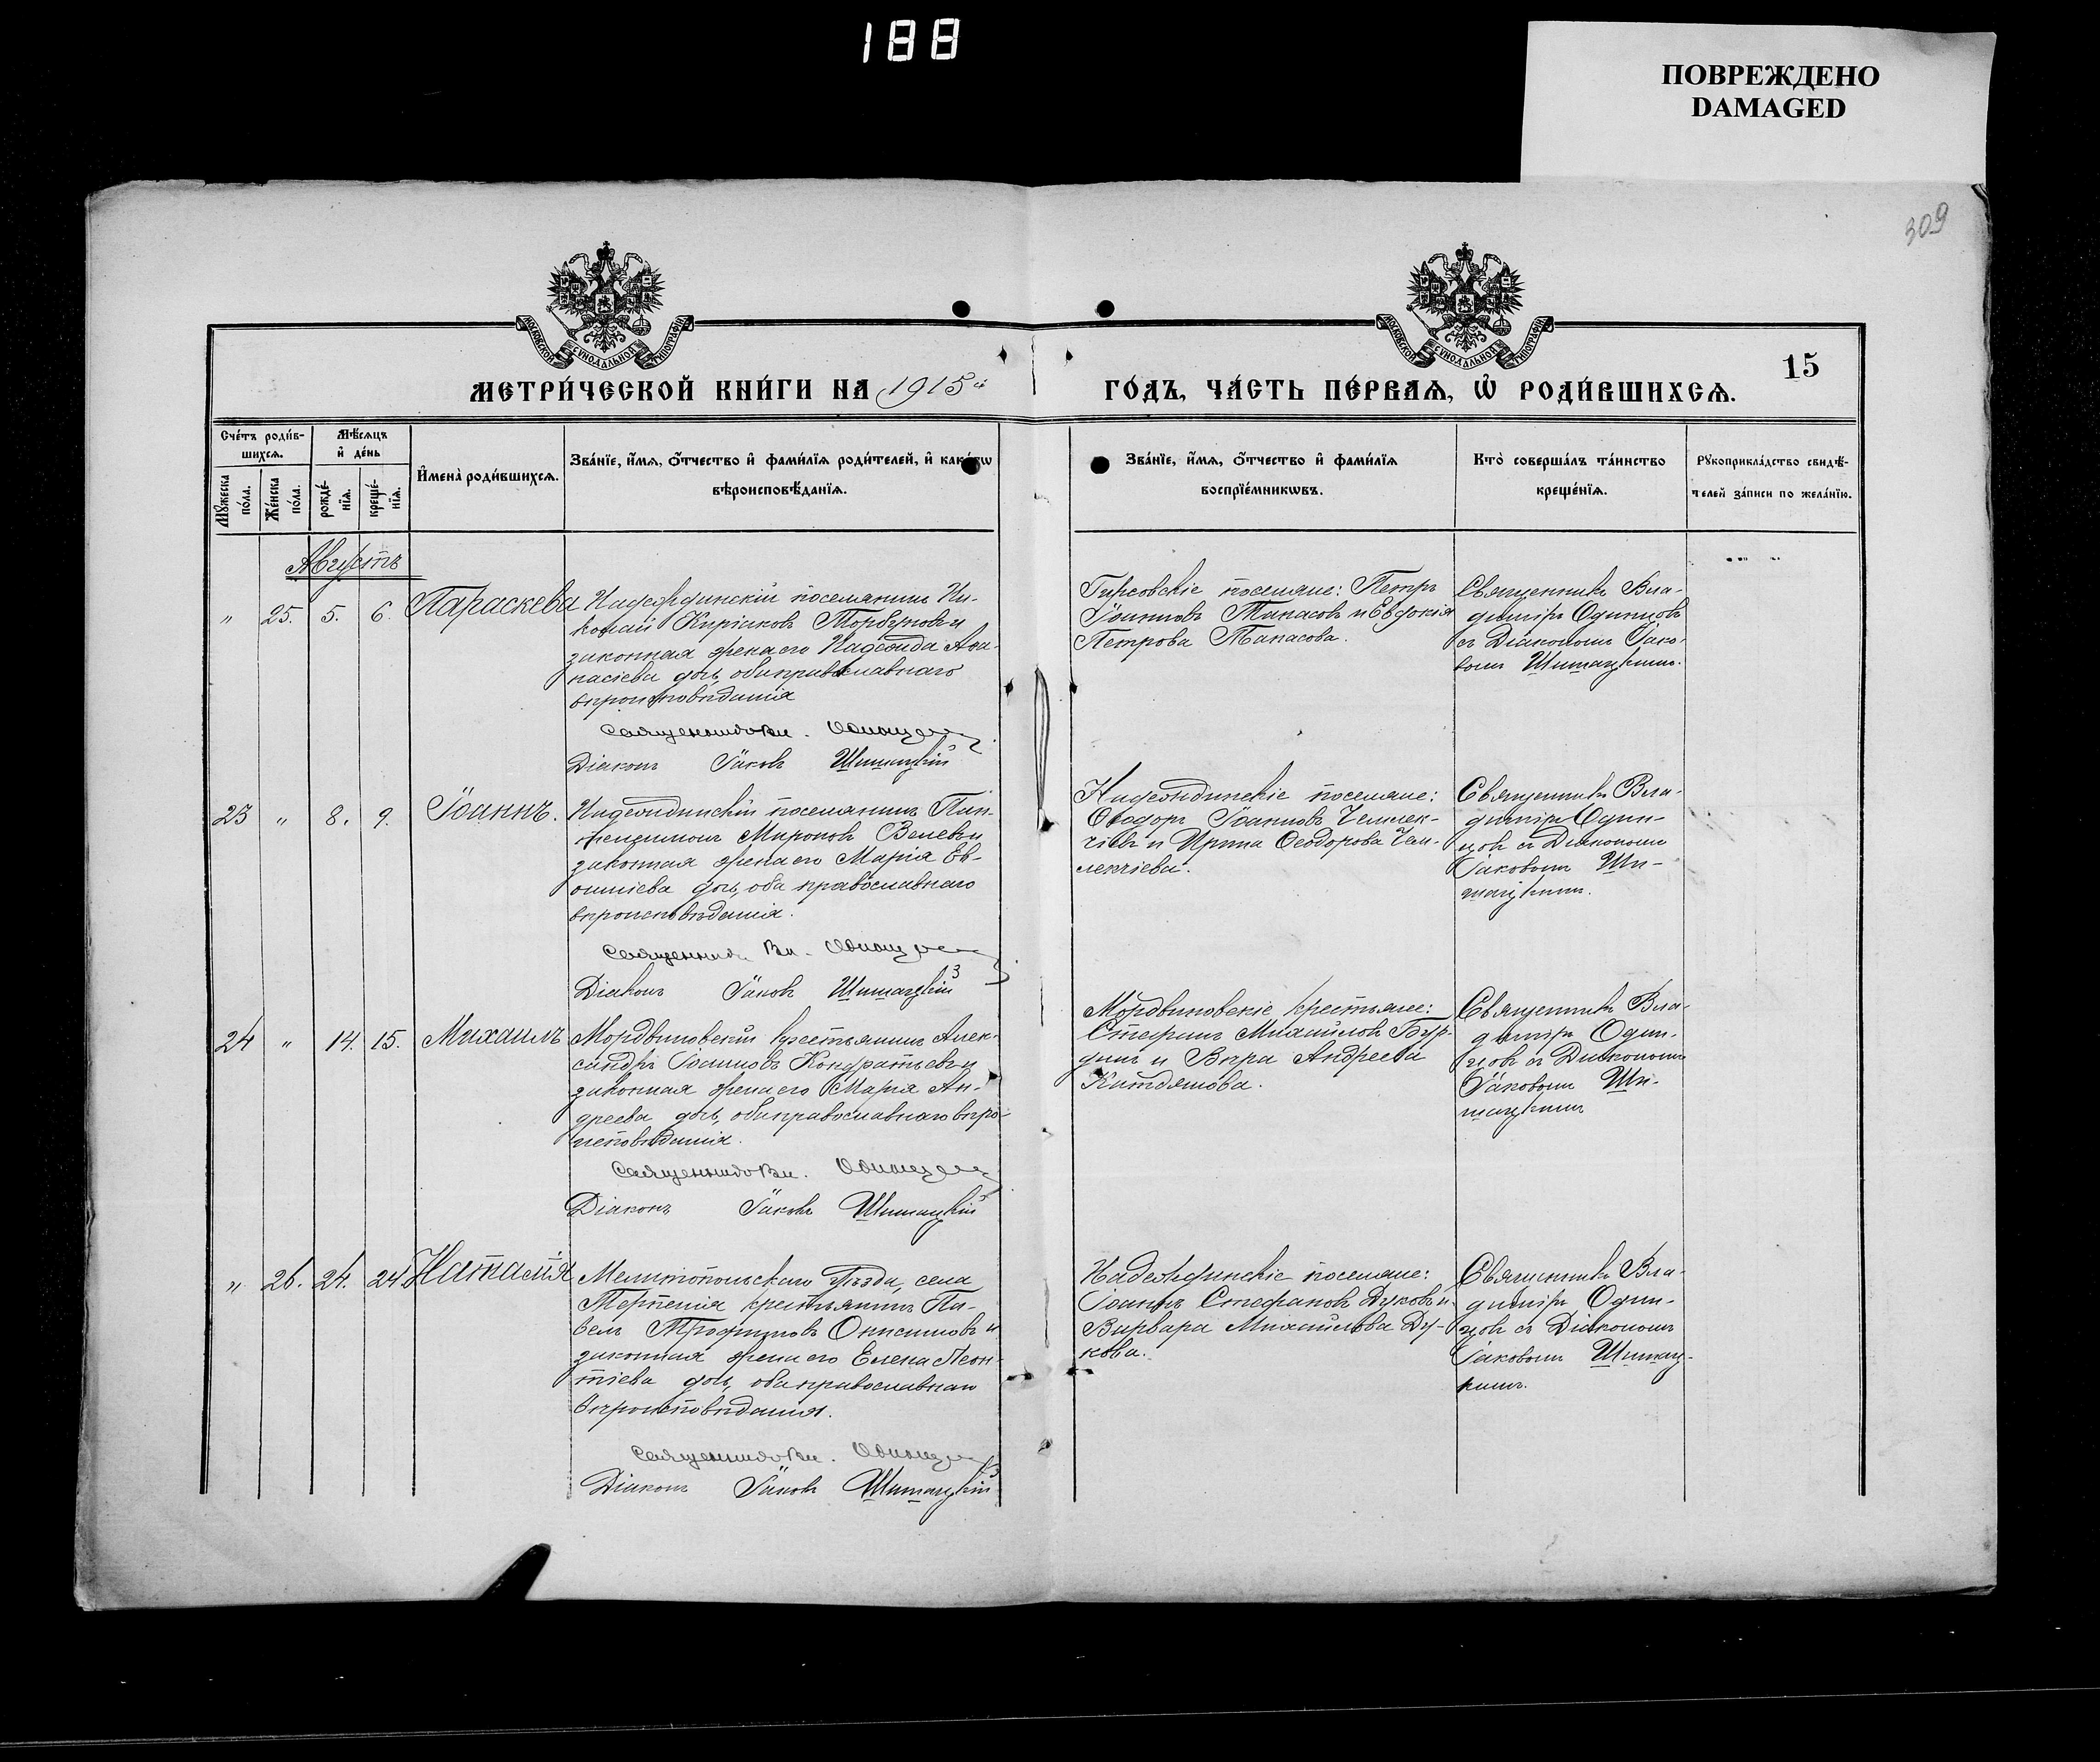 188
ПОВРЕЖДЕНО
DAMAGED
309
МОСКОВСКОЙ СѴНОДАЛЬНОЙ ТИПОГРАФІИ
МОСКОВСКОЙ СѴНОДАЛЬНОЙ ТИПОГРАФІИ
15
МЕТРИ́ЧЕСКОЙ КНИ́ГИ НА 1915й
ГО́ДЪ, ЧА́СТЬ ПЕ́РВАѦ, Ѡ҆ РОДИ́ВШИХСѦ.
Сче́тъ роди́в-
шихсѧ.
Мѣ́сѧцъ
и҆ де́нь
Мꙋ́жеска
по́ла.
Же́нска
по́ла.
рожде́-
нїѧ.
креще́-
нїѧ.
И҆мена̀ роди́вшихсѧ.
Зва́нїе, и҆́мѧ, ѻ҆́тчество и҆ фами́лїѧ роди́телей, и҆ какѡ́гѡ
вѣроисповѣ́данїѧ.
Зва́нїе, и҆́мѧ, ѻ҆́тчество и҆ фами́лїѧ
воспрїе́мникѡвъ.
Кто̀ соверша́лъ та́инство
креще́нїѧ.
Рꙋкоприкла́дство свидѣ́-
телей за́писи по жела́нїю.
Августъ
" 25. 5. 6. Параскева
Надеждинскій поселянинъ Ни-
колай Киріаковъ Торбуновъ и
законная жена его Надежда Аѳа-
насіева дочь, оба православнаго
вѣроисповѣданія
Священникъ Вл. Одинцовъ
Діаконъ Іаковъ Шишацкій
Гирсовскіе поселяне: Петръ
Іоанновъ Танасовъ и Евдокія
Петрова Танасова.
Священникъ Вла-
диміръ Одинцовъ
съ Діакономъ Іако-
вомъ Шишацкимъ.
23 " 8. 9. Іоаннъ.
Надеждинскій поселянинъ Пан-
телеимонъ Мироновъ Велевъ и
законная жена его Марія Ев-
ѳиміева дочь, оба православнаго
вѣроисповѣданія.
Священникъ Вл. Одинцовъ
Діаконъ Іаковъ Шишацкій
Надеждинскіе поселяне:
Ѳеодоръ Іоанновъ Чемлек-
чіевъ и Ирина Ѳеодорова Чем-
лекчіева.
Священникъ Вла-
диміръ Один-
цовъ съ Діакономъ
Іаковомъ Ши-
шацкимъ.
24 " 14. 15. Михаилъ
Мордвиновскій крестьянинъ Алек-
сандръ Іоанновъ Кондратьевъ и
законная жена его Марія Ан-
дреева дочь, оба православнаго вѣро-
исповѣданія.
Священникъ Вл. Одинцовъ
Діаконъ Іаковъ Шишацкій
Мордвиновскіе крестьяне:
Стефанъ Михайловъ
и Вѣра Андреева
Священникъ Вла-
диміръ Один-
цовъ съ Діакономъ
Іаковомъ Ши-
шацкимъ
" 26. 24. 24. Наталія
Мелитопольскаго Уѣзда, села
Терпенія крестьянинъ Па-
велъ Трофимовъ Онисимовъ и
законная жена его Елена Леон-
тіева дочь, оба православнаго
вѣроисповѣданія.
Священникъ Вл. Одинцовъ
Діаконъ Іаковъ Шишацкій
Надеждинскіе поселяне:
Іоаннъ Стефановъ Дуковъ и
Варвара Михайлова Ду-
кова.
Священникъ Вла-
диміръ Один-
цовъ съ Діакономъ
Іаковомъ Шишац-
кимъ.